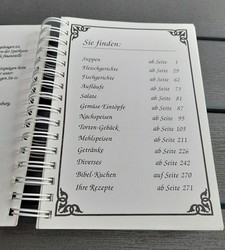 Sie finden:
Suppen ab Seite 1
Fleischgerichte ab Seite 29
Fischgerichte ab Seite 62
Aufläufe ab Seite 73
Salate ab Seite 81
Gemüse-Eintöpfe ab Seite 87
Nachspeisen ab Seite 95
Torten-Gebäck ab Seite 103
Mehlspeisen ab Seite 211
Getränke ab Seite 226
Diverses ab Seite 242
Bibel-Kuchen auf Seite 270
Ihre Rezepte ab Seite 271